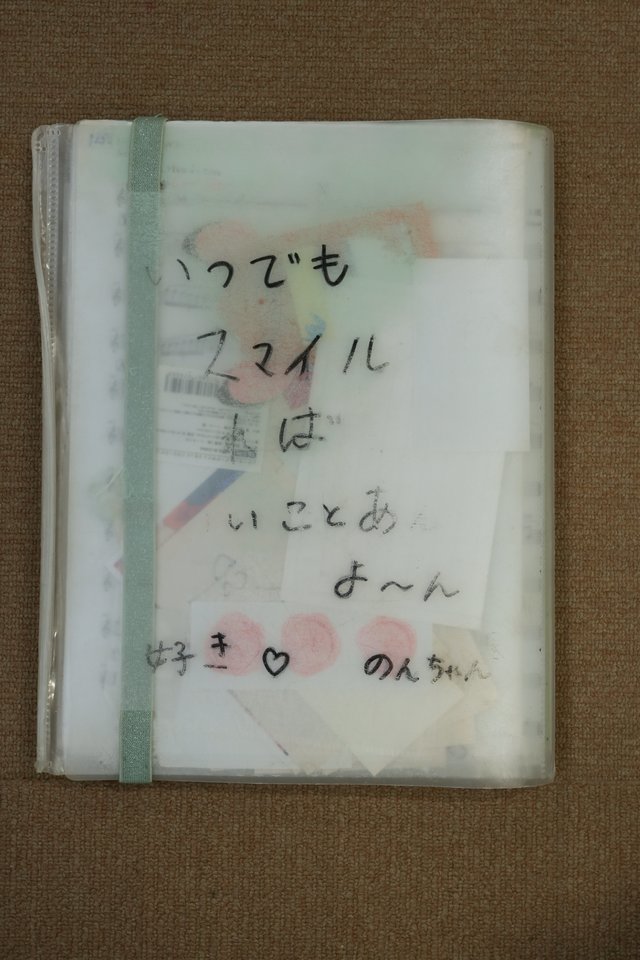 いつでも
スマイル
れば
いことあ
よ〜ん
好き♡ のんちゃん